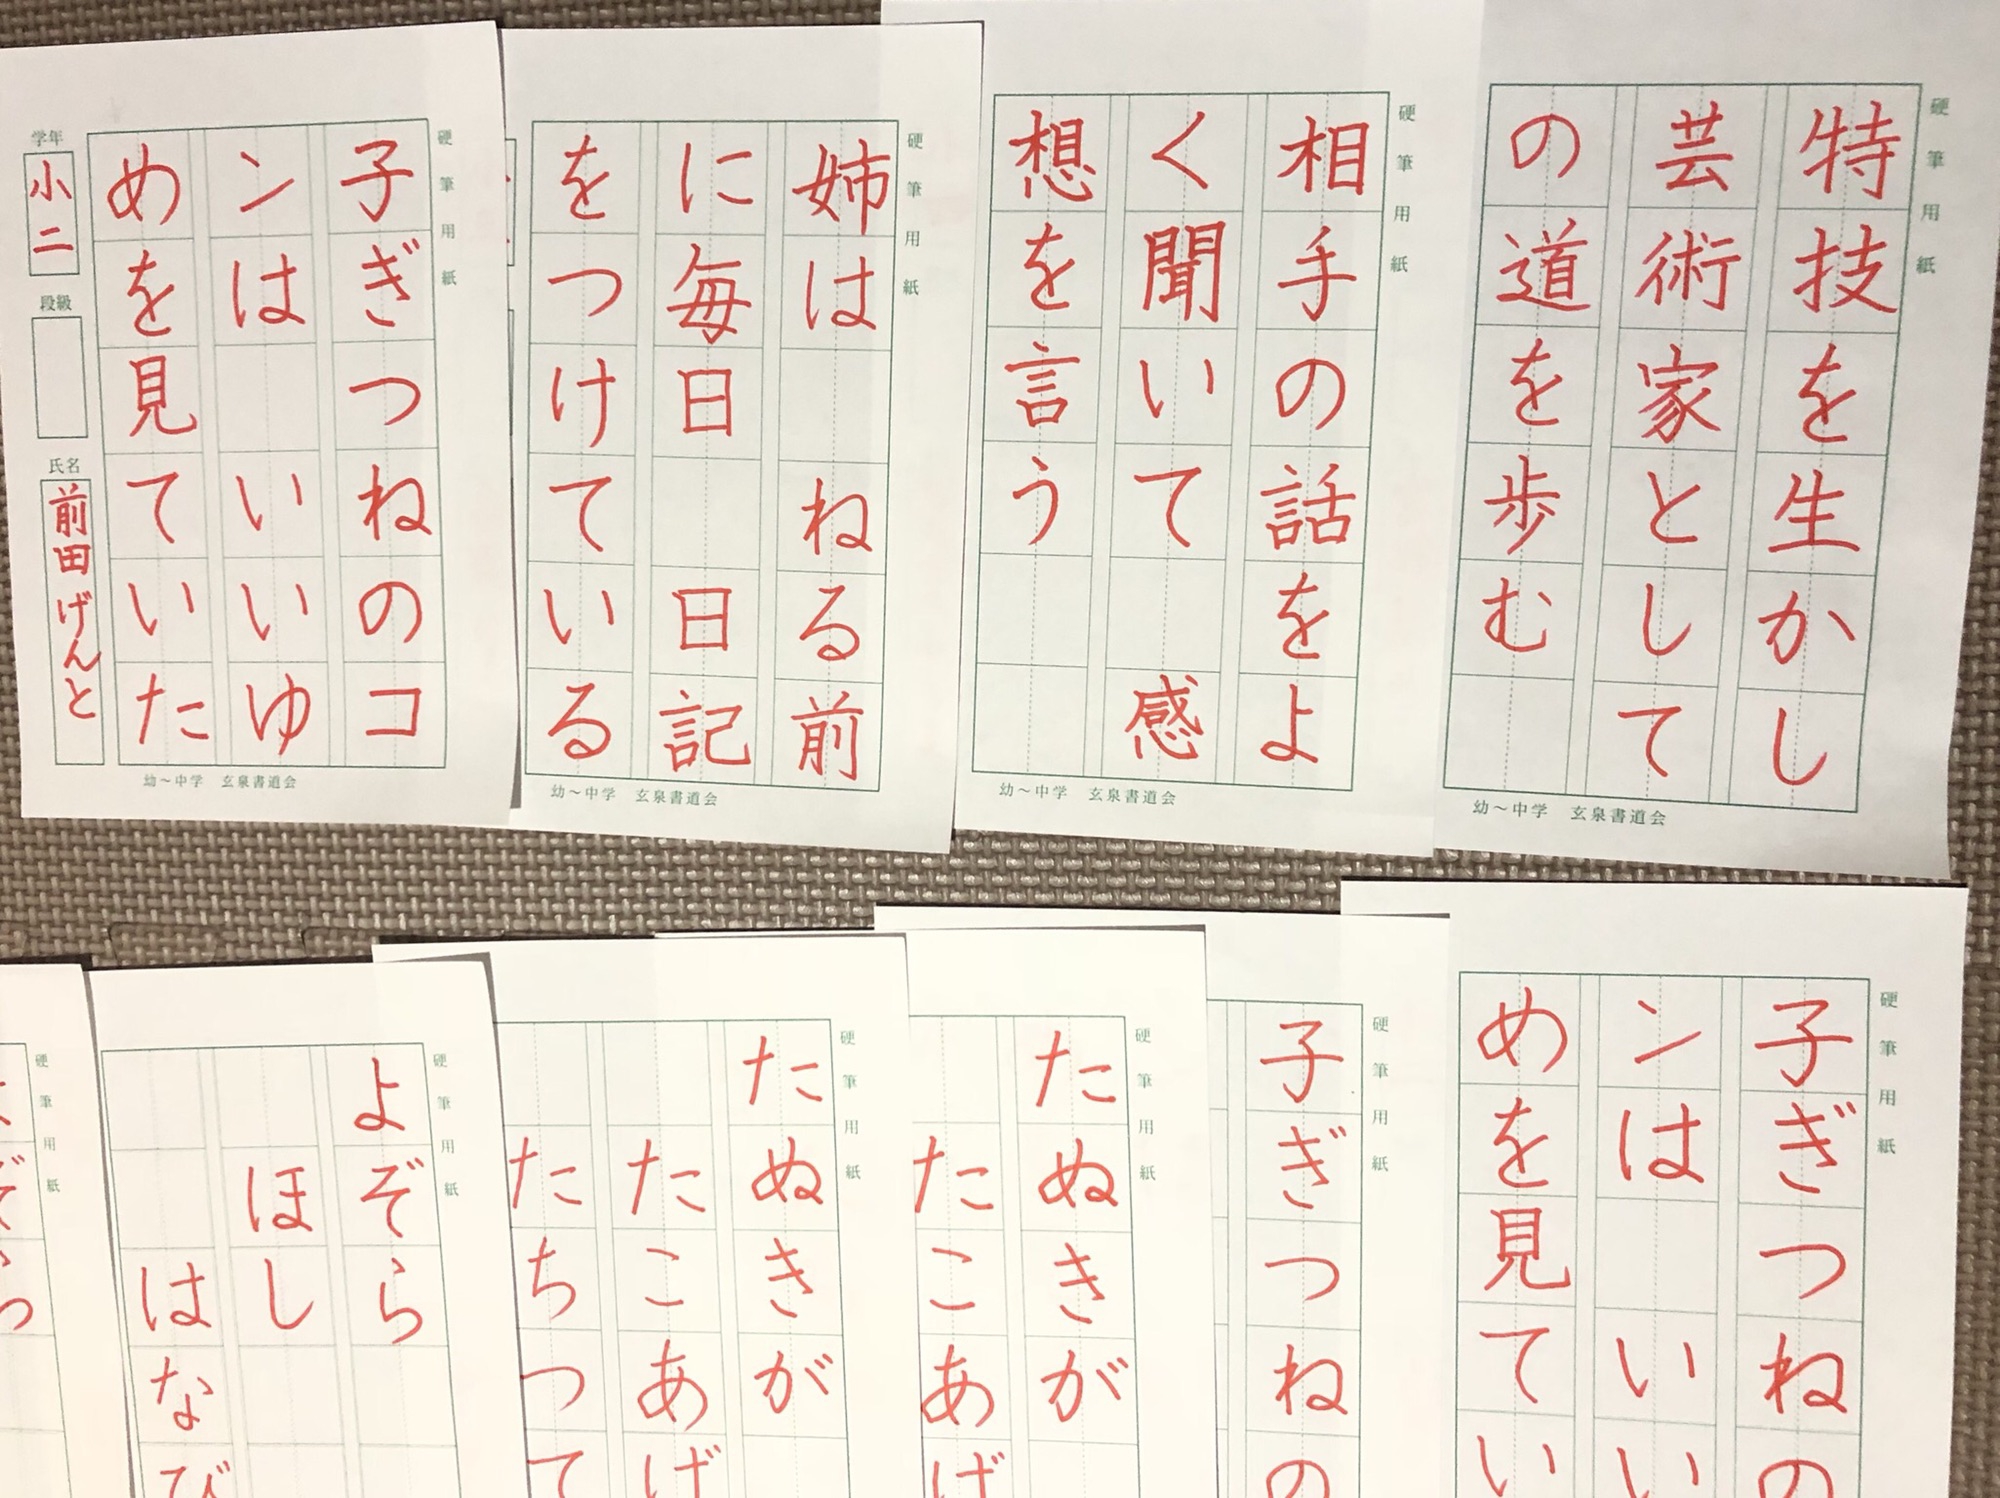 硬筆用紙
特技を生かし
芸術家として
の道を歩む
幼～中学　玄泉書道会
硬筆用紙
相手の話をよ
く聞いて　感
想を言う
幼～中学　玄泉書道会
硬筆用紙
姉は　ねる前
に毎日　日記
をつけている
幼～中学　玄泉書道会
硬筆用紙
子ぎつねのコ
ンは　いいゆ
めを見ていた
学年
小二
段級
氏名
前田げんと
幼～中学　玄泉書道会
硬筆用紙
子ぎつねの
ンは　いい
めを見てい
硬筆用紙
子ぎつねの
硬筆用紙
たぬきが
たこあげ
硬筆用紙
たぬきが
たこあげ
たちつて
硬筆用紙
よぞら
ほし
はなび
硬筆用紙